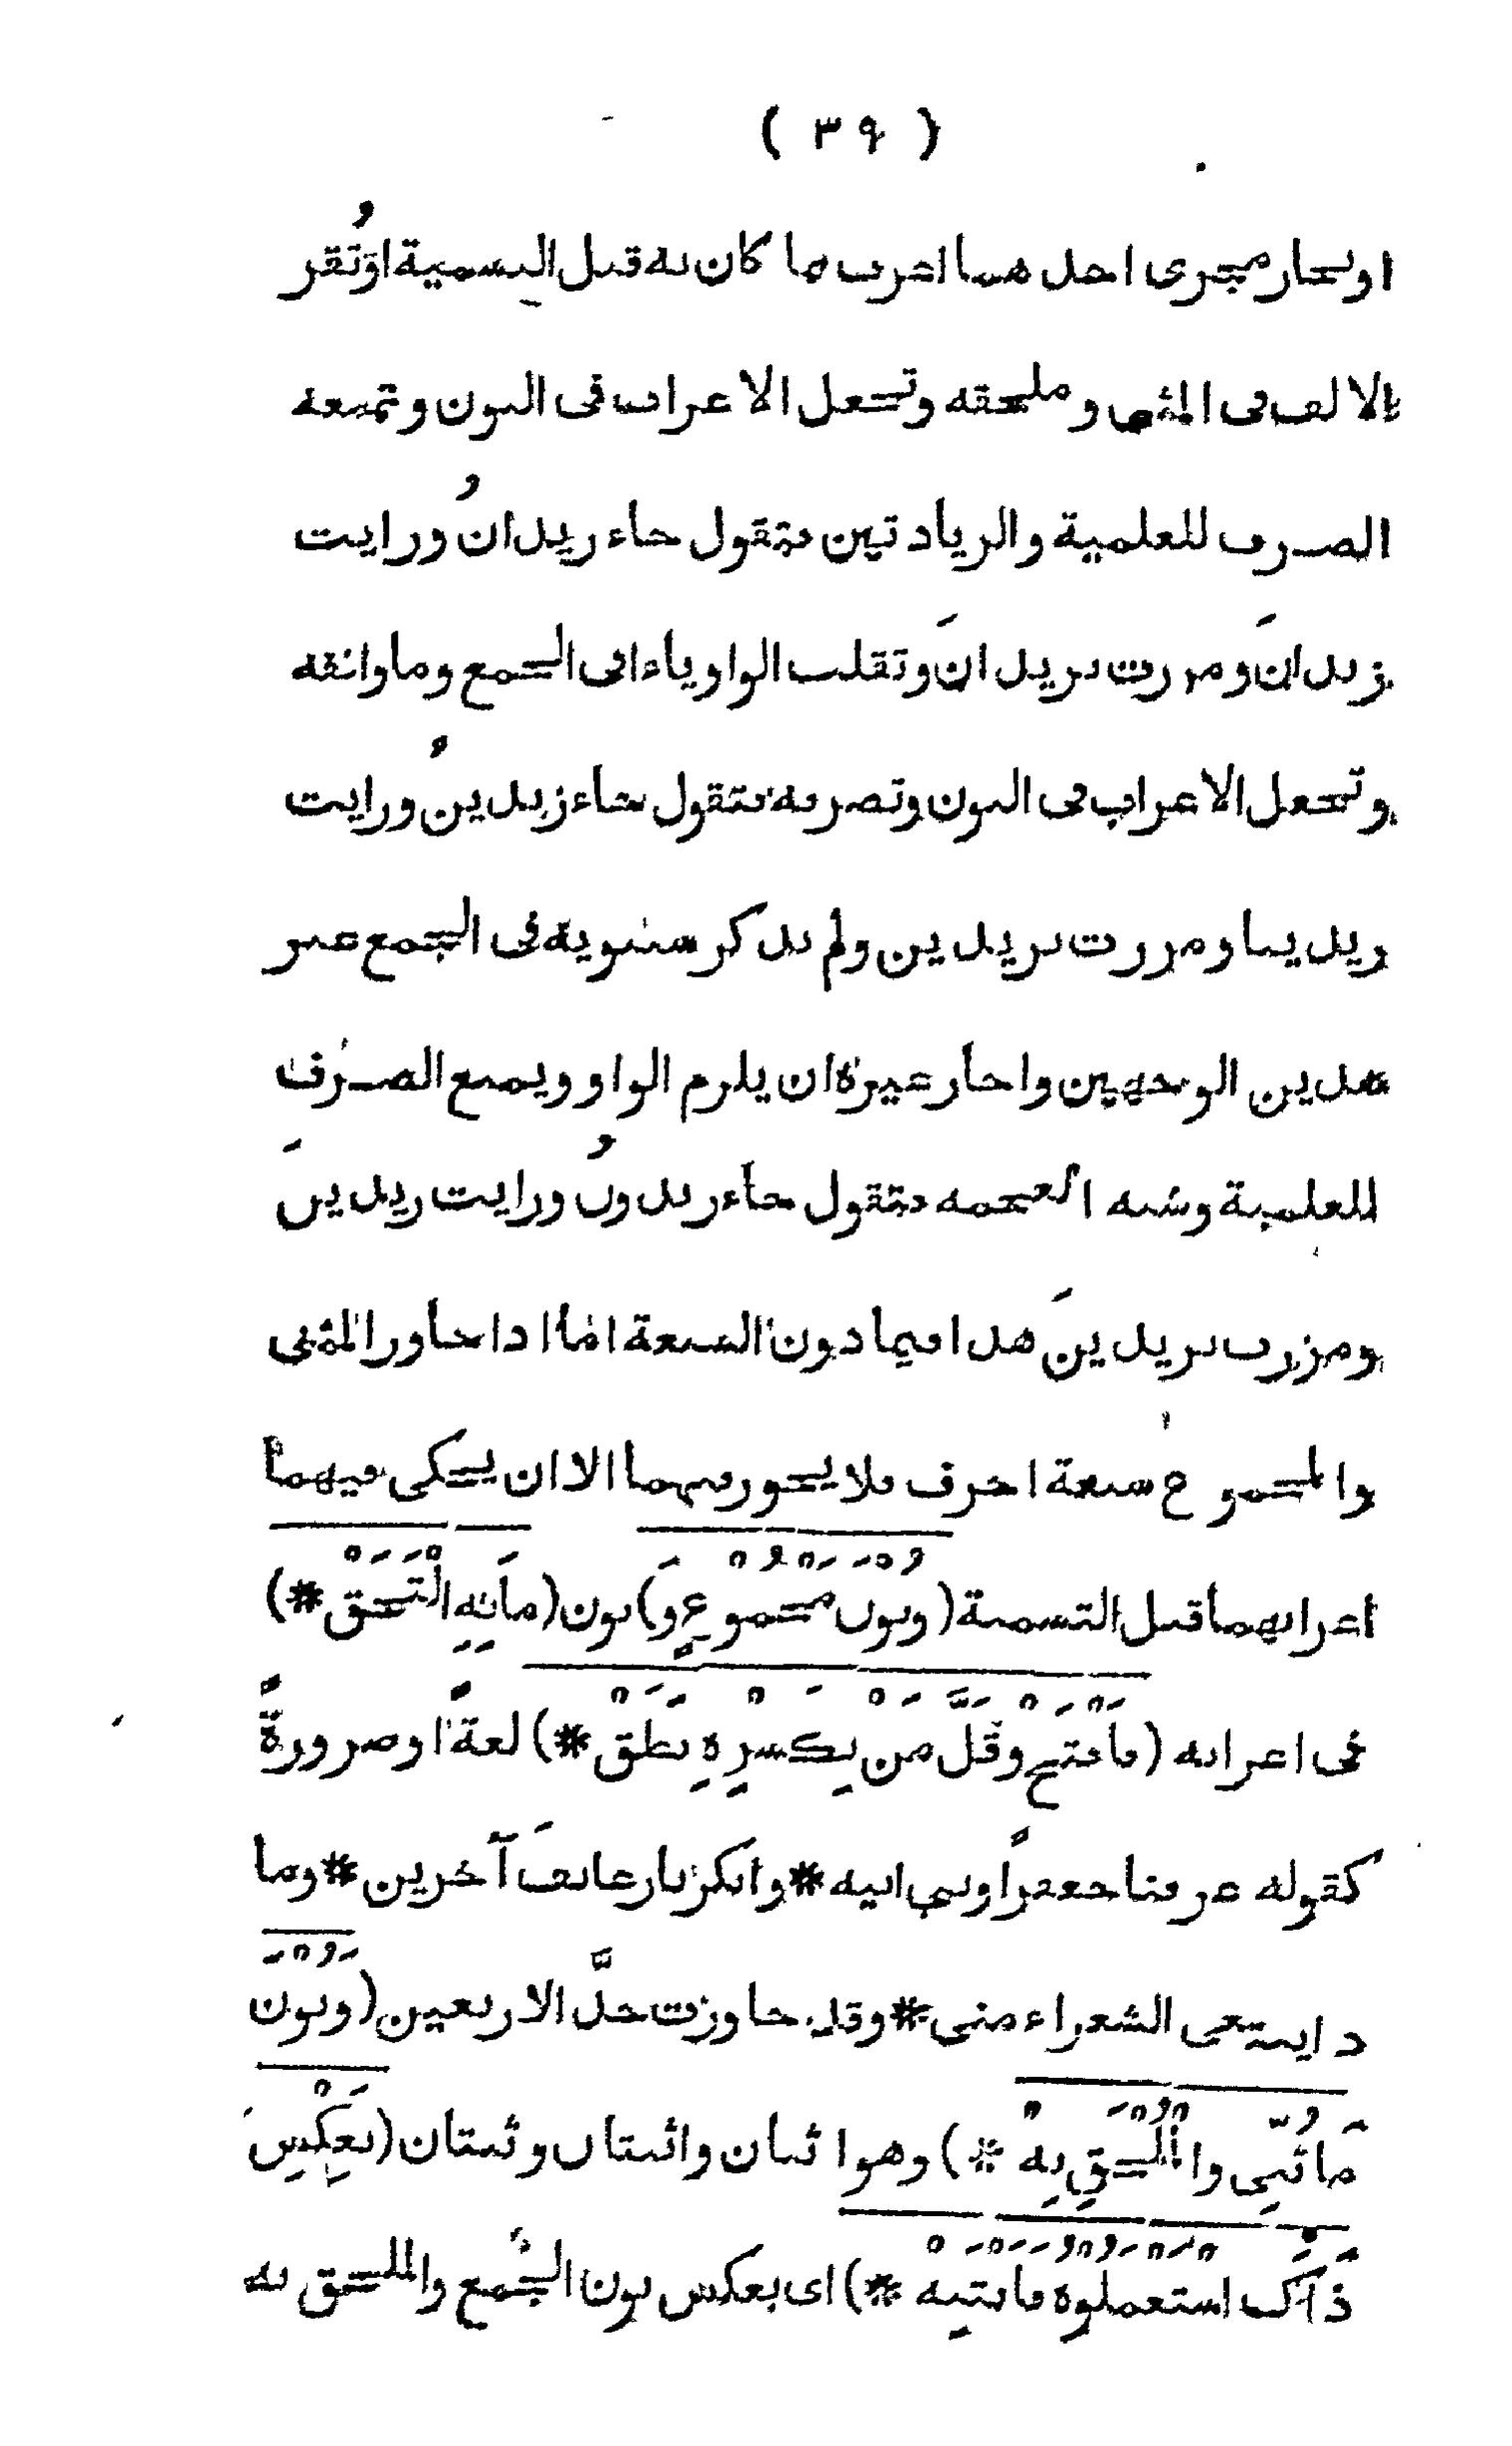 ( ٣٩ )
او بجار مجرى احدهما اعرب ما كان له قبل التسمية او تُقر
بالالف فى المثنى وملحقه وتجعل الاعراب فى النون وتمنعه
الصرف للعلمية والزيادتين فتقول جاء زيدانُ ورايت
زيدانَ ومررت بزيدانَ وتقلب الواو ياء فى الجمع وما وافقه
وتجعل الاعراب فى النون وتصرفه فتقول جاء زيدينٌ ورايت
زيدينا ومررت بزيدين ولم يذكر سيبويه فى الجمع غير
هذين الوجهين واجاز غيره ان يلزم الواو ويمنع الصرف
للعلمية وشبه العجمه فتقول جاء زيدونُ ورايت زيدينَ
ومررت بزيدينَ هذا فيما دون السبعة اما اذا جاوز المثنى
والمجموع سبعة احرف فلا يجوز فيهما الا ان يحكى فيهما
اعرابهما قبل التسمية (ونُونَ مَجْمُوْعٍ وَ) نون (مَا بِهِ الْتَحَقْ *)
فى اعرابه (فَافْتَحْ وَقَلَّ مَنْ بِكَسْرِهِ نَطَقْ *) لغةً او ضرورةً
كقوله عرفنا جعفرًا وبنى ابيه * وانكرنا زعانفَ آخرين * وما
ذا يبتغى الشعراء منى * وقد جاوزت حدَّ الاربعين (وَنُوْنُ
مَا ثُنِّى وَالْمُلْحَقِ بِهْ *) وهو اثنان واثنتان وثنتان (بِعَكْسِ
ذَاكَ اسْتَعْمَلُوْهُ فَانْتَبِهْ *) اى بعكس نون الجمع والملحق به